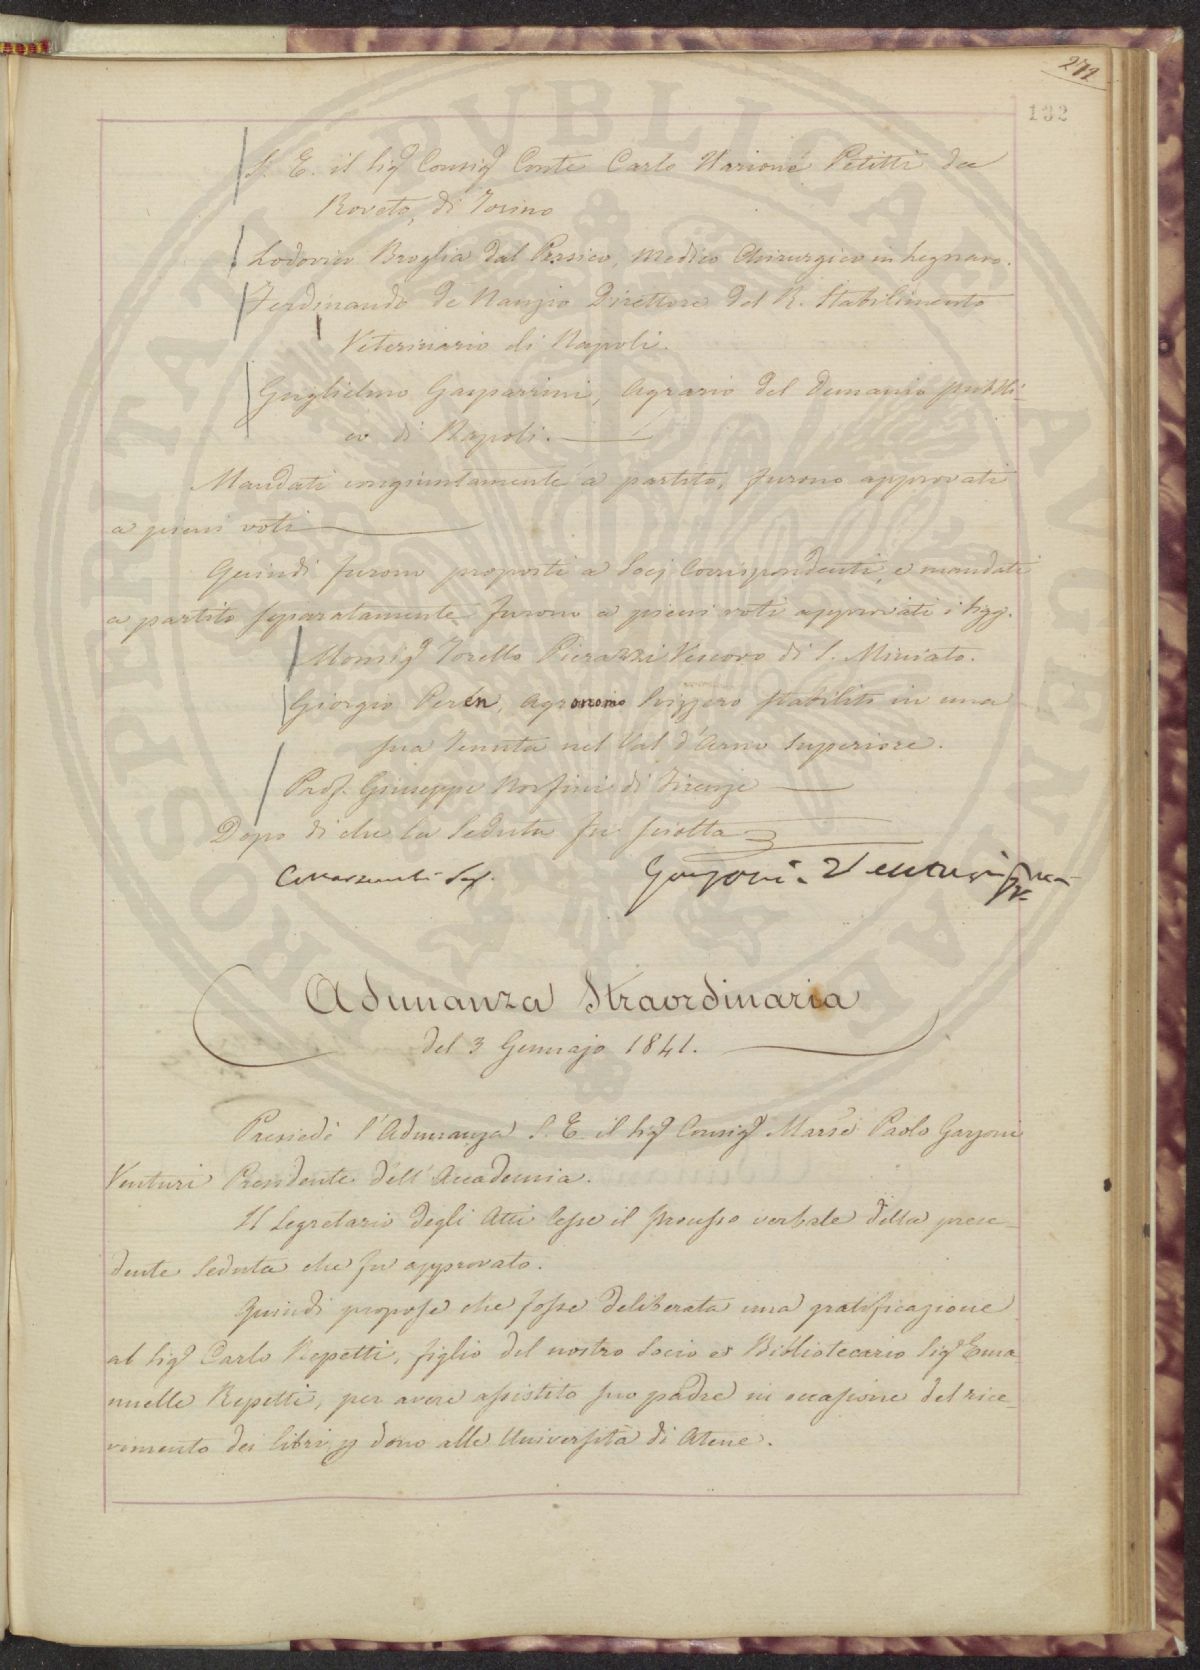 272
132
S. E. il Sig.r Consig.r Conte Carlo Ilarione Petitti da
Roreto, di Torino
Lodovico Broglia dal Persico, Medico Chirurgico in Legnaro.
Ferdinando de Nanzio Direttore del R. Stabilimento
Veterinario di Napoli.
Guglielmo Gasparrini, Agrario del Demanio pubbli-
co di Napoli.
Mandati congiuntamente a partito, furono approvati
a pieni voti
Quindi furono proposti a Socj Corrispondenti, e mandati
a partito separatamente furono a pieni voti approvati i Sigg.
Monsig.r Torello Pierazzi Vescovo di S. Miniato.
Giorgio Perén, Agronomo Svizzero stabilito in una
sua Tenuta nel Val d'Arno Superiore.
Prof. Giuseppe Norfini di Firenze
Dopo di che la Seduta fu sciolta
Garzoni Venturi
Adunanza Straordinaria
del 3 Gennajo 1841.
Presiedè l'Adunanza S. E. il Sig.r Consig.r Marse Paolo Garzoni
Venturi Presidente dell'Accademia.
Il Segretario degli Atti lesse il processo verbale della prece-
dente Seduta che fu approvato.
Quindi propose che fosse deliberata una gratificazione
al Sig.r Carlo Repetti, figlio del nostro Socio e Bibliotecario Sig.r Ema-
nuelle Repetti, per avere assistito suo padre in occasione del rice-
vimento dei libri p dono alle Università di Atene.
PUBLICAE